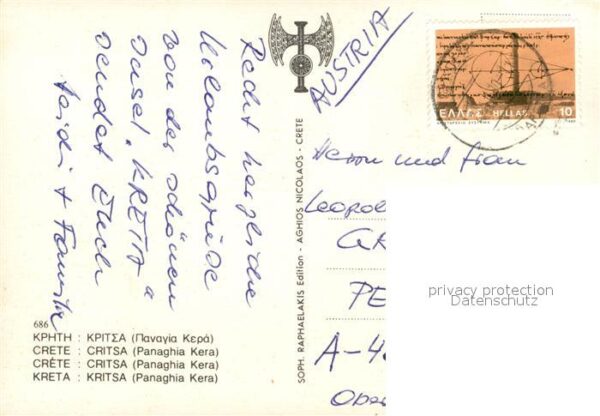 Recht herzliche
Urlaubsgrüße
von der schönen
Insel „KRETA“
sendet Euch
Heidi + Familie
686
ΚΡΗΤΗ : ΚΡΙΤΣΑ (Παναγία Κερά)
CRETE : CRITSA (Panaghia Kera)
CRÈTE : CRITSA (Panaghia Kera)
KRETA : KRITSA (Panaghia Kera)
SOPH. RAPHAELAKIS Edition - AGHIOS NICOLAOS - CRETE
AUSTRIA
ΕΛΛΑΣ HELLAS 10
Herrn und Frau
Leopol
GR
PE
A-4
Obe
privacy protection
Datenschutz